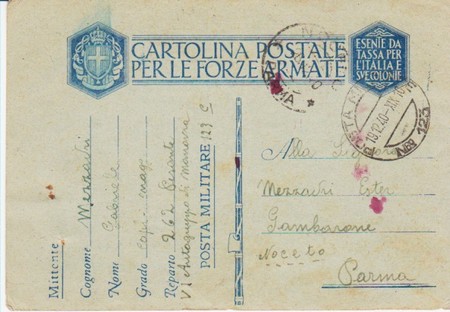 CARTOLINA POSTALE
PER LE FORZE ARMATE
ESENTE DA
TASSA PER
L'ITALIA E
SVE COLONIE
19.12.40-XIX
No 123
PARMA
Mittente
Cognome Mezzadri
Nome Gabriele
Grado cap. magg.
Reparto 262 Pesante
VI Autogruppo di Manovra
POSTA MILITARE 123 C
Alla Signora
Mezzadri Ester
Gambarone
Noceto
Parma